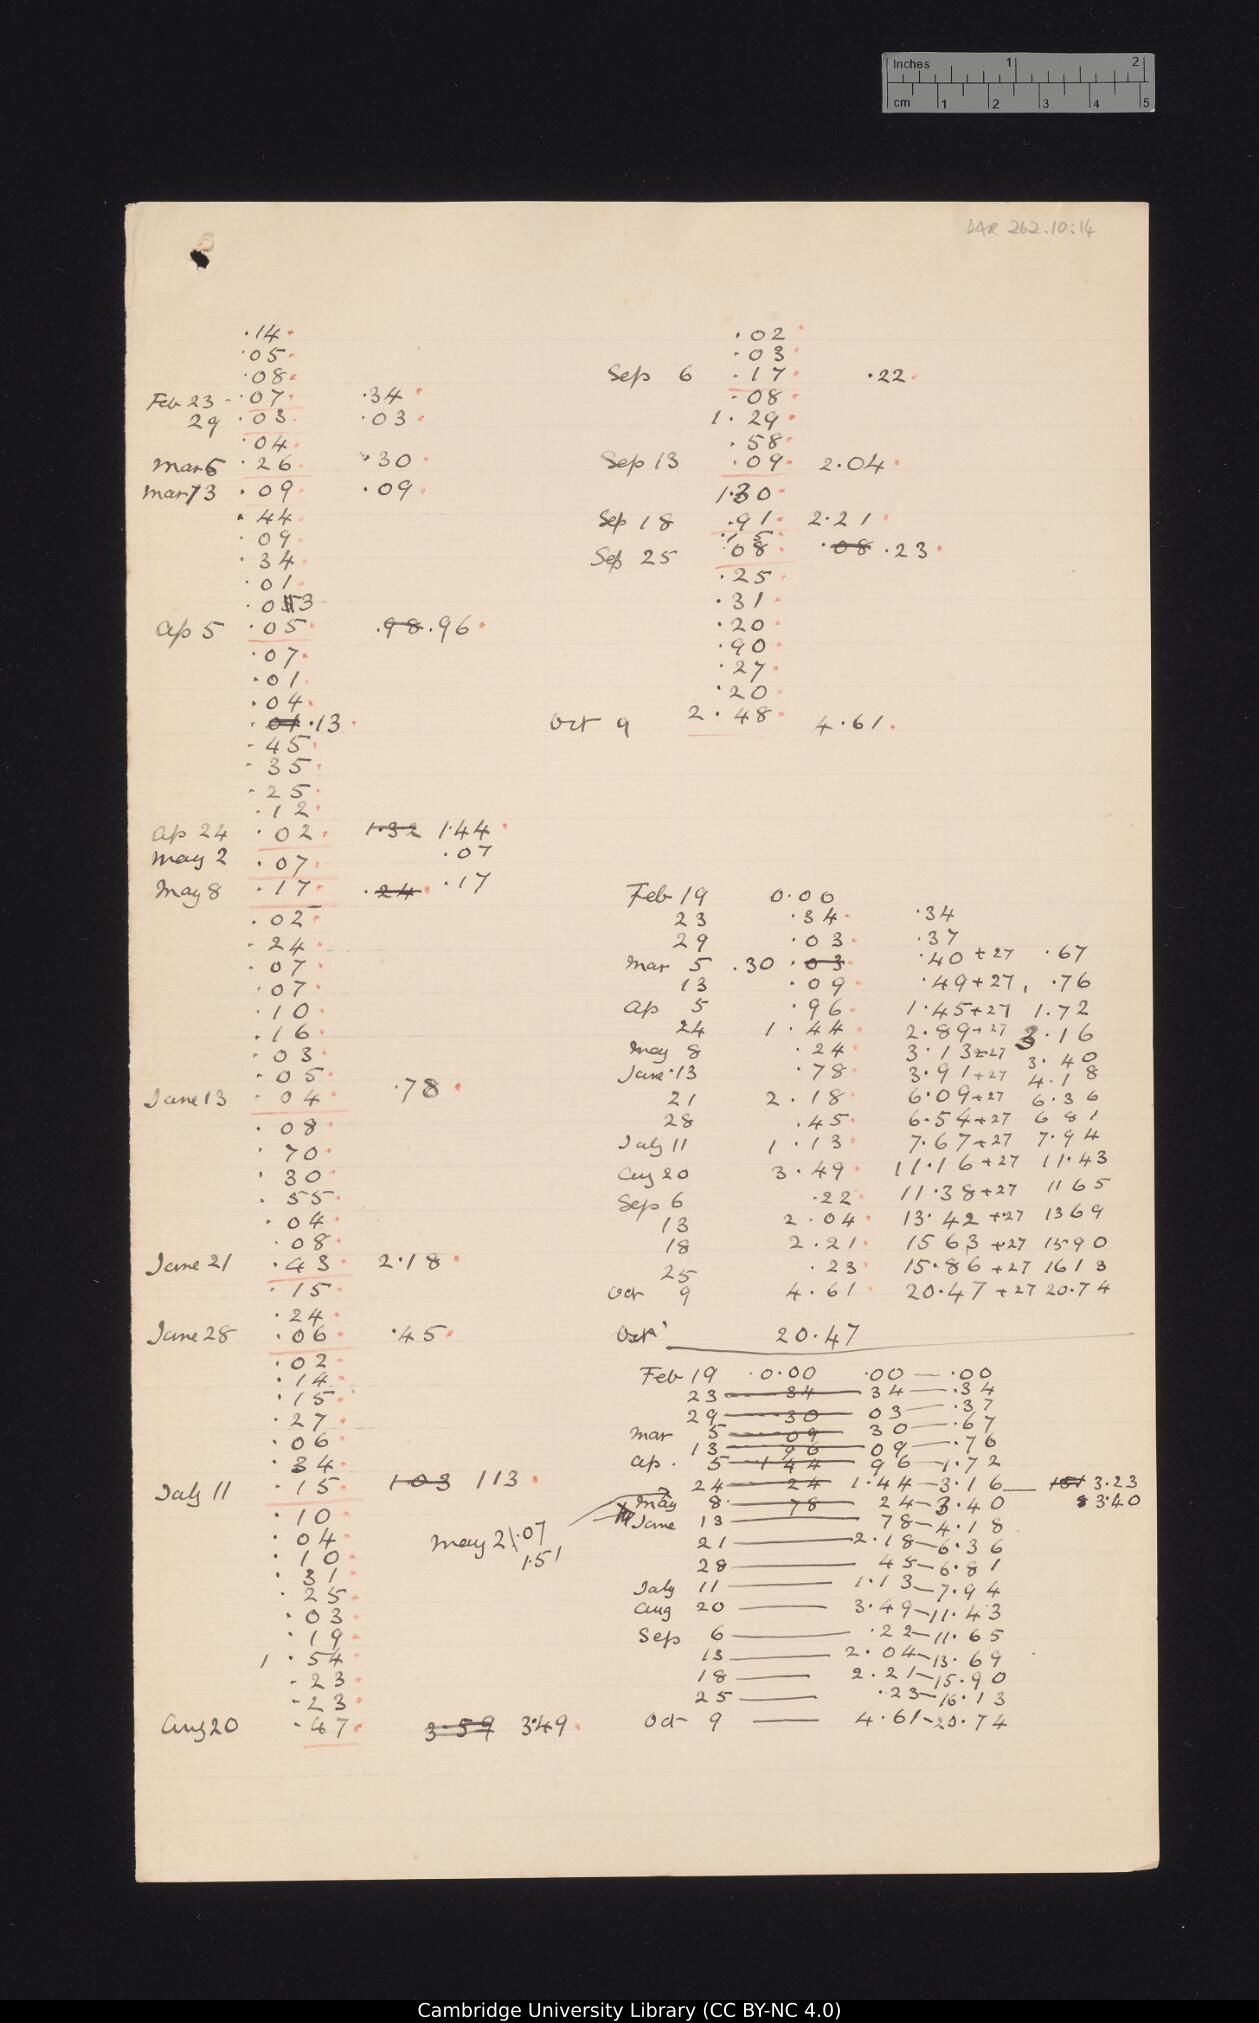 Inches 1 2
cm 1 2 3 4 5
DAR 262.10:14
.14
.05
.08
Feb 23 - .07 .34
29 .03 .03
.04
Mar 5 .26 .30
Mar 13 .09 .09
.44
.09
.34
.01
.03
Ap 5 .05 .98 .96
.07
.01
.04
.01 .13
.45
.35
.25
.12
Ap 24 .02 1.32 1.44
May 2 .07 .07
May 8 .17 .24 .17
.02
.24
.07
.07
.10
.16
.03
.05
June 13 .04 .78
.08
.70
.30
.55
.04
.08
June 21 .43 2.18
.15
.24
June 28 .06 .45
.02
.14
.15
.27
.06
.34
July 11 .15 103 113
.10
.04
.10
.31
.25
.03
.19
1.54
.23
.23
Aug 20 .47 3.59 3.49
May 2 .07
1.51
.02
.03
Sep 6 .17 .22
.08
1.29
.58
Sep 13 .09 2.04
1.30
Sep 18 .91 2.21
.15
Sep 25 .08 .08 .23
.25
.31
.20
.90
.27
.20
Oct 9 2.48 4.61
Feb 19 0.00
23 .34 .34
29 .03 .37
Mar 5 .30 .03 .40 + 27 .67
13 .09 .49 + 27, .76
Ap 5 .96 1.45 + 27 1.72
24 1.44 2.89 + 27 3.16
May 8 .24 3.13 + 27 3.40
June 13 .78 3.91 + 27 4.18
21 2.18 6.09 + 27 6.36
28 .45 6.54 + 27 6 81
July 11 1.13 7.67 + 27 7.94
Aug 20 3.49 11.16 + 27 11.43
Sep 6 .22 11.38 + 27 11 65
13 2.04 13.42 + 27 13 69
18 2.21 15 63 + 27 15 90
25 .23 15.86 + 27 16 13
Oct 9 4.61 20.47 + 27 20.74
Oct 20.47
Feb 19 .0.00 .00 — .00
23 34 34 — .34
29 30 03 — .37
Mar 5 09 30 — .67
13 96 09 — .76
Ap. 5 1 44 96 — 1.72
24 24 1.44 — 3.16 — 151 3.23
May 8 78 24 — 3.40 3.40
June 13 — 78 — 4.18
21 — 2.18 — 6.36
28 — 45 — 6.81
July 11 — 1.13 — 7.94
Aug 20 — 3.49 — 11.43
Sep 6 — .22 — 11.65
13 — 2.04 — 13.69
18 — 2.21 — 15.90
25 — .23 — 16.13
Oct 9 — 4.61 — 20.74
Cambridge University Library (CC BY-NC 4.0)